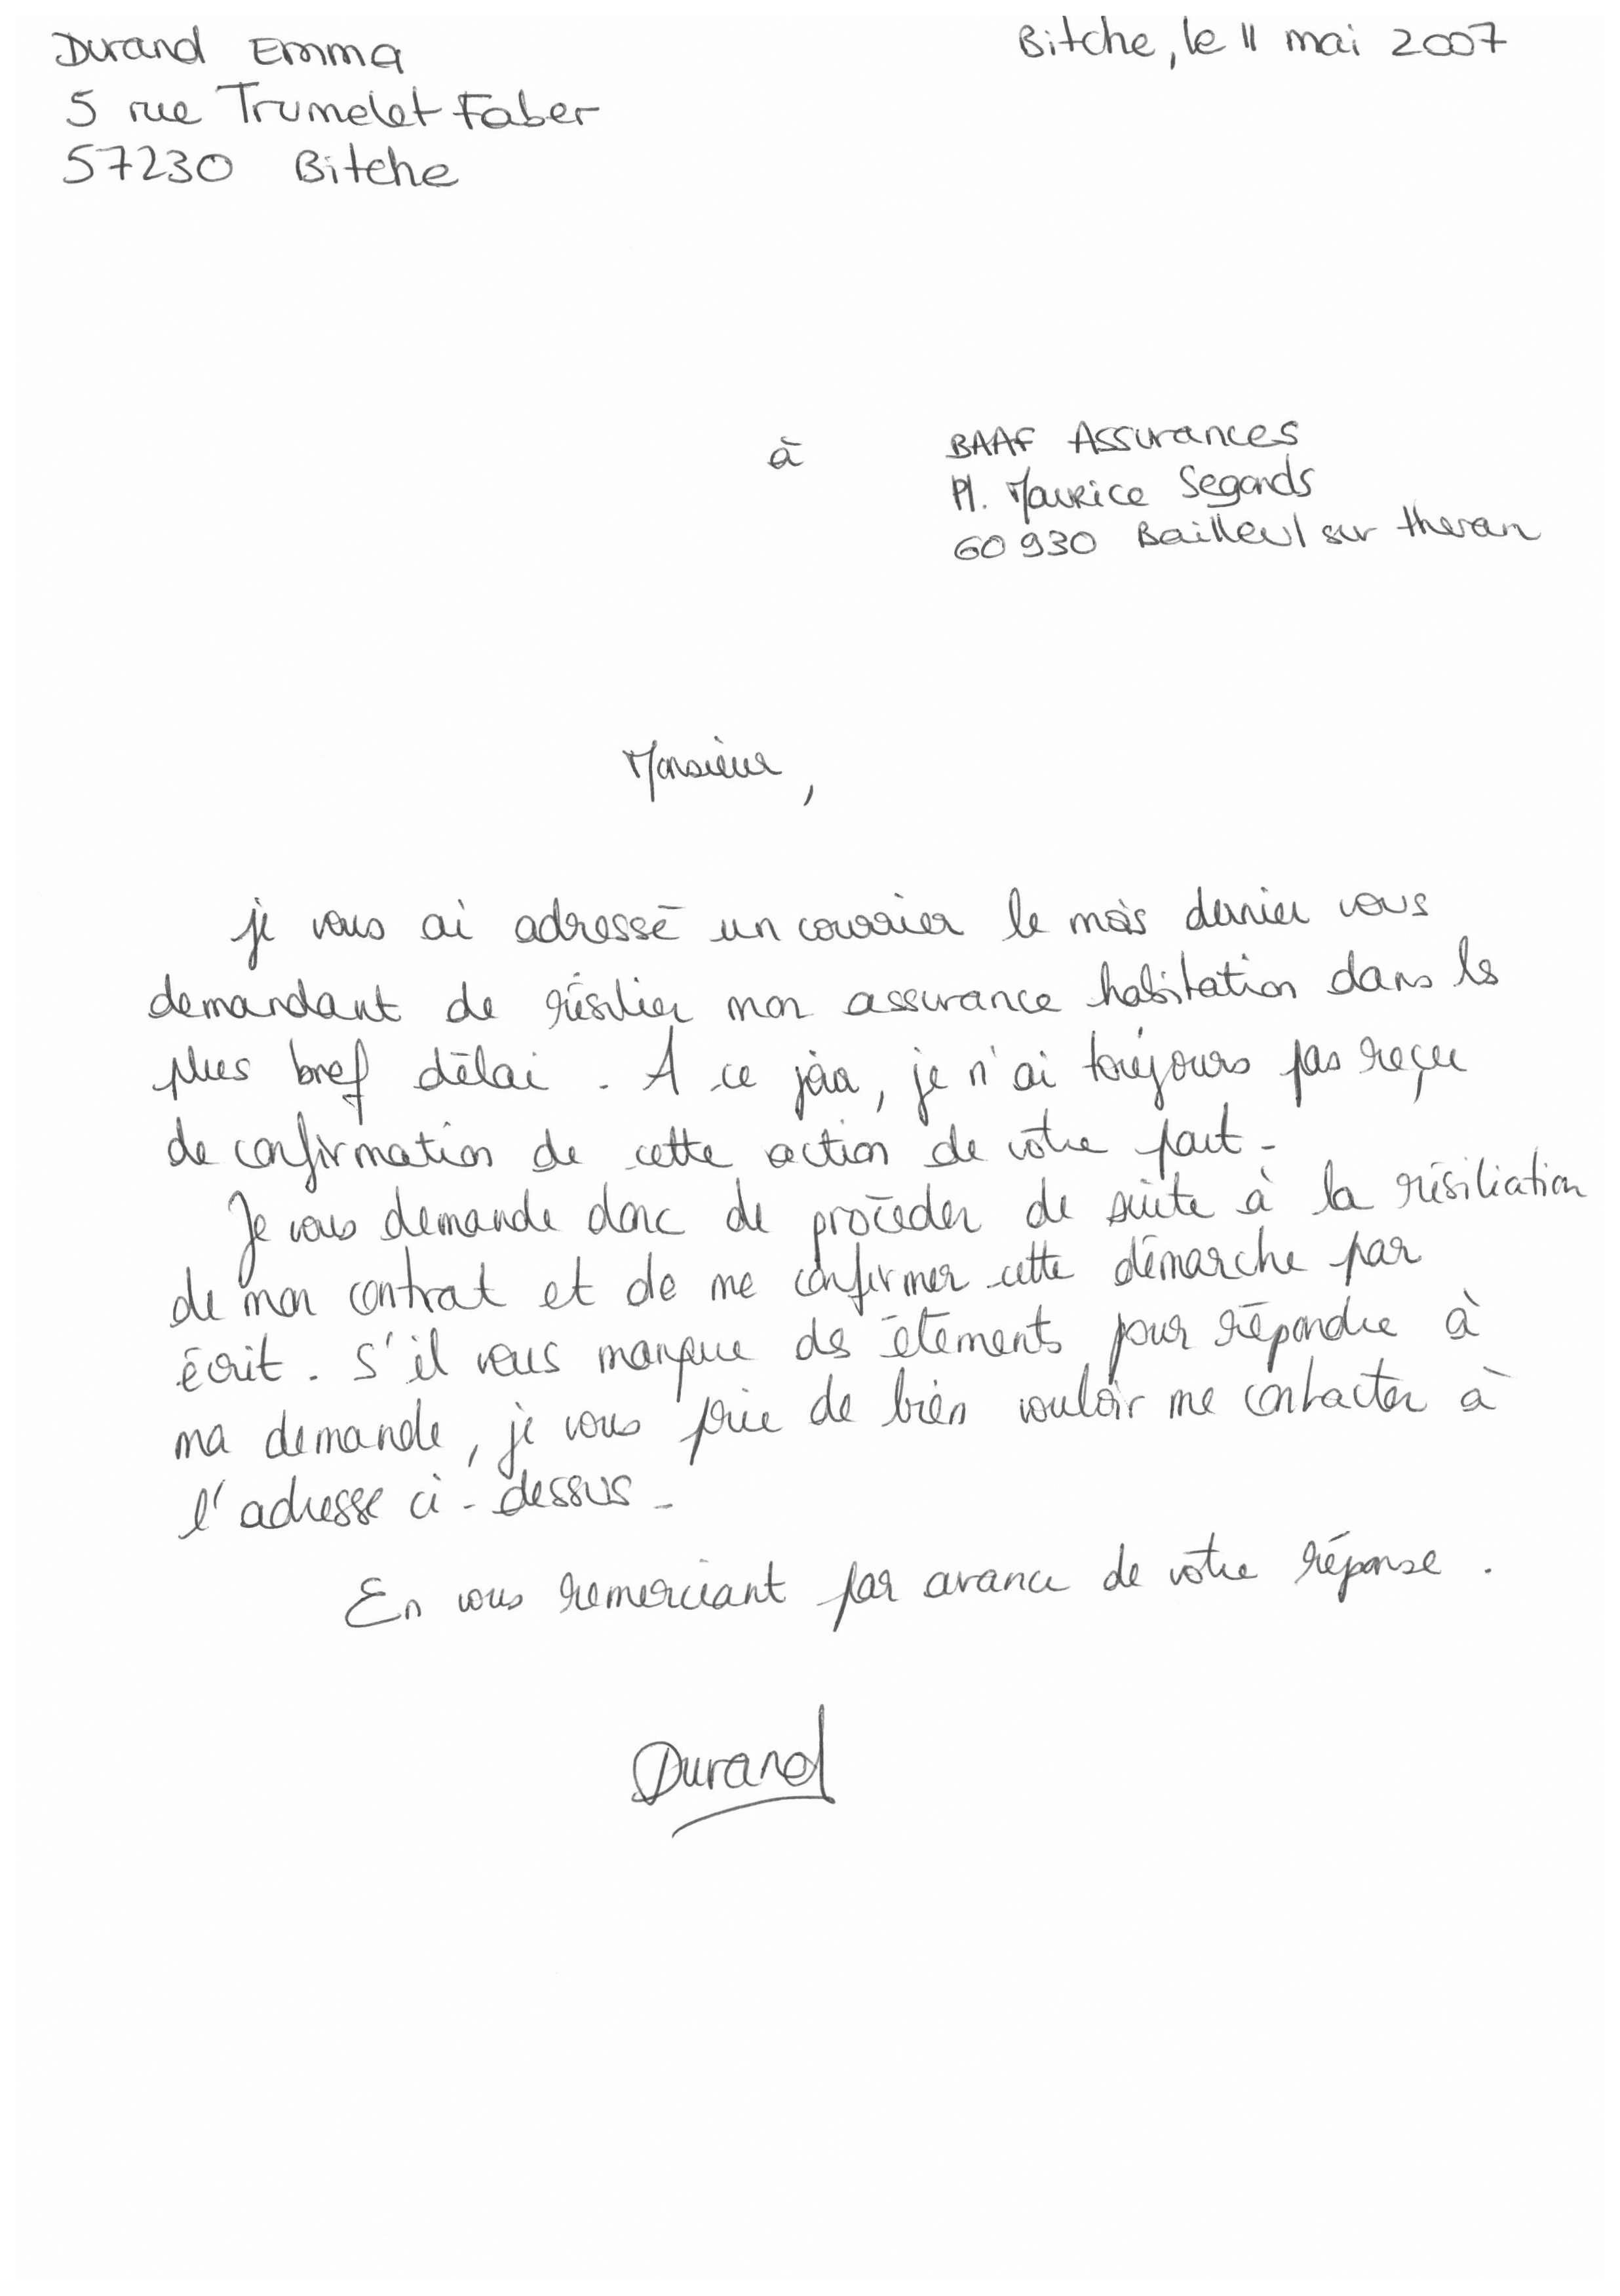 Durand Emma
Bitche, le 11 mai 2007
5 rue Trumelet Faber
57230 Bitche
à
BAAF Assurances
Pl. Maurice Segonds
60930 Bailleul sur theran
Monsieur,
je vous ai adressé un courrier le mois dernier vous
demandant de résilier mon assurance habitation dans le
plus bref délai. A ce jour, je n'ai toujours pas reçu
de confirmation de cette action de votre part.
Je vous demande donc de procéder de suite à la résiliation
de mon contrat et de me confirmer cette démarche par
écrit. S'il vous manque des éléments pour répondre à
ma demande, je vous prie de bien vouloir me contacter à
l'adresse ci-dessus.
En vous remerciant par avance de votre réponse.
Durand